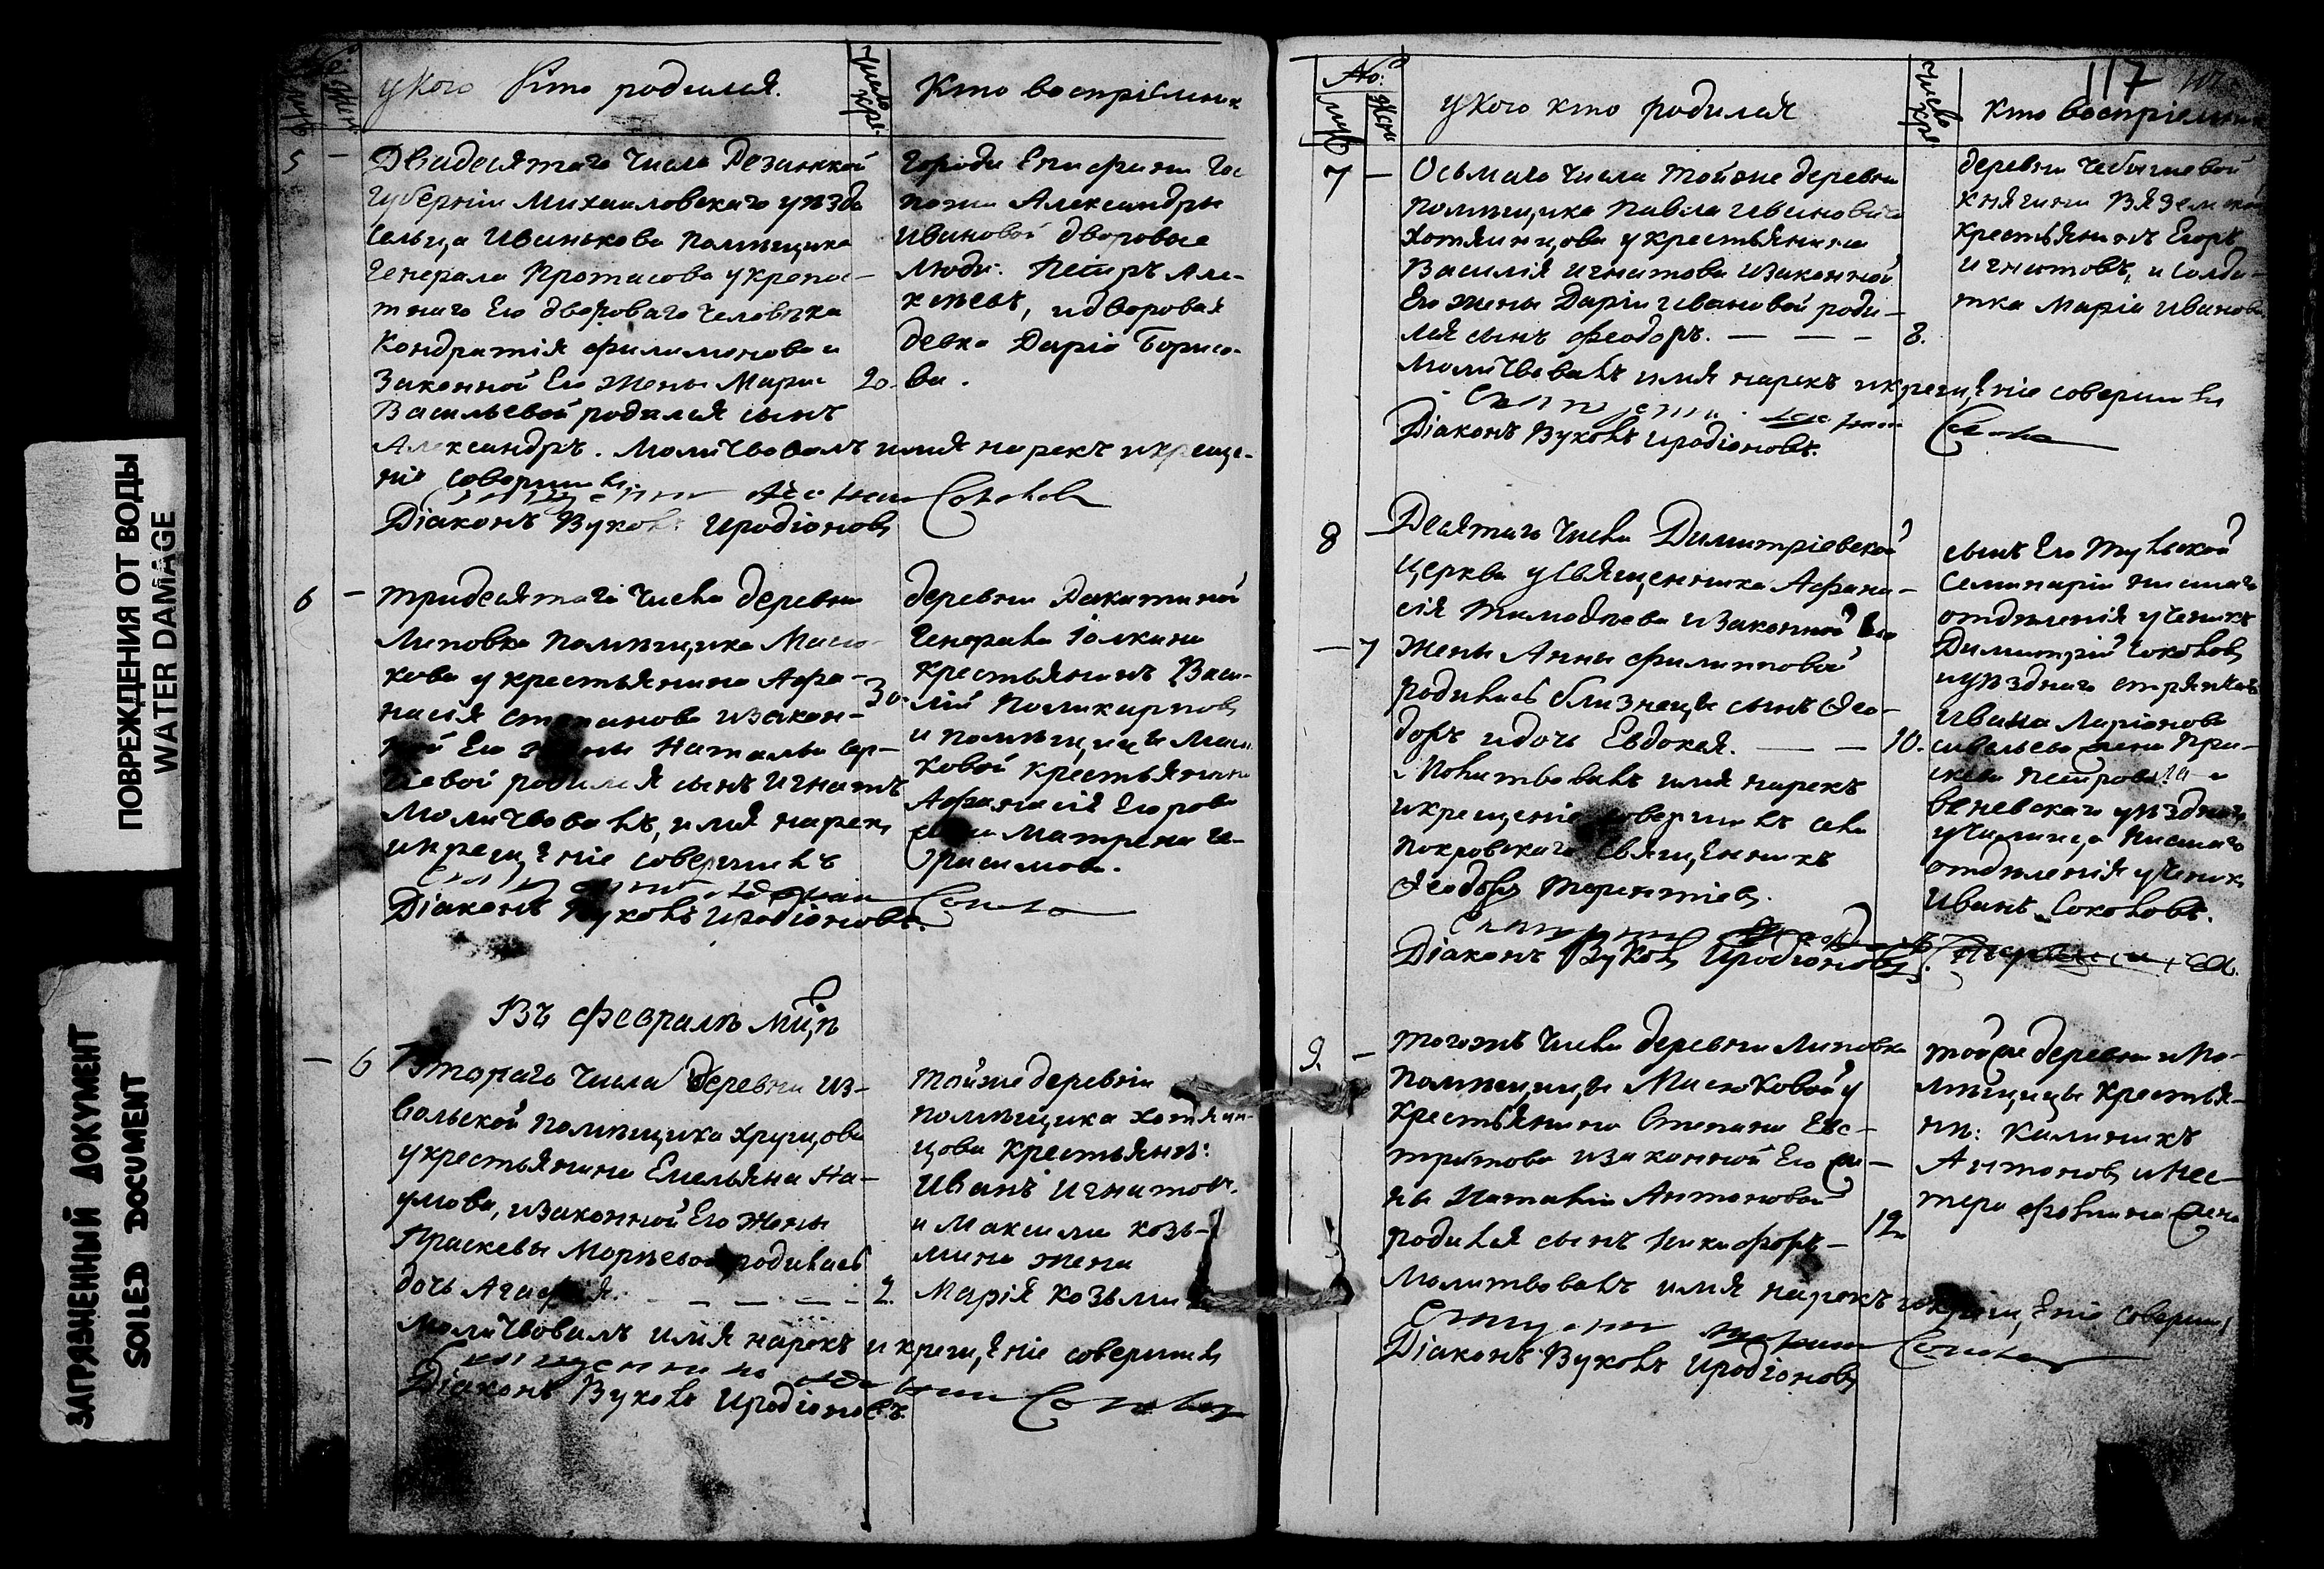 ПОВРЕЖДЕНИЯ ОТ ВОДЫ
WATER DAMAGE
ЗАГРЯЗНЕННЫЙ ДОКУМЕНТ
SOILED DOCUMENT
у Кого Кто родился.
Число кре.
Кто воспріемник
5 —
Двадесятаго числа Резанской
Губерніи Михаиловскаго уезда
сельца Иванькова помещика
Генерала Протасова у крепос-
тнаго Его двороваго человека
Кондратія Филимонова и
Законной Его жены Марии
Васильевой родился сынъ
Александръ. Молитвовалъ имя нарекъ и креще-
ніе совершилъ
Діаконъ Вуколъ Иродіоновъ
20.
города Епифани Гос
пожи Александры
Ивановой дворовые
люди: Петръ Але-
ксеевъ, и дворовая
девка Дарія Борисо-
ва.
6 —
тридесятаго числа деревни
Липовка помещика Масю-
кова у крестьянина Афа-
насія Степанова и закон-
ной Его жены Натальи Сер-
геевой родился сынъ Игнатъ
Молитвовалъ, имя нарекъ
и крещеніе совершилъ
Діаконъ Вуколъ Иродіоновъ.
30.
деревни Ракитиной
Генерала
крестьянинъ Васи-
лій Поликарповъ
и помещицы Масю
ковой крестьянина
Афанасія Егорова
жена Матрена Ге-
расимова.
Въ феврале м-це
— 6
Втораго числа деревни Из-
вольской помещика Хрущова
у крестьянина Емельяна На-
умова, и законной Его жены
Праскевы родилась
дочь Агафія. — — — —
2.
Молитвовалъ имя нарекъ и крещеніе совершилъ
Діаконъ Вуколъ Иродіоновъ.
тойже деревни
помещика Хотяин-
цова крестьяне:
Иванъ Игнатов.
и Максима Козь-
мина жена
Марія Козьмина
No:
муж
жен
у кого кто родился
Число кре
117
Кто воспріемник
7 —
Осьмаго числа тойже деревни
помещика Павла Ивановича
Хотяинцова у крестьянина
Василія Игнатова и законной
Его жены Даріи Ивановой роди-
лся сынъ Феодоръ. — — —
8.
Молитвовалъ имя нарекъ и крещеніе совершилъ
Діаконъ Вуколъ Иродіоновъ.
деревни Чебышевой
княгини Вяземской
крестьянинъ Егоръ
Игнатовъ, и солда-
тка Марія Иванова
8 —
— 7
Десятаго числа Димитріевской
церкви у священника Афана-
сія Тимофеева и законной Его
жены Анны Филипповой
родились близнецы сынъ Фео-
доръ и дочь Евдокея. — —
10.
Молитвовалъ имя нарекъ
и крещеніе совершилъ села
Покровскаго священникъ
Феодоръ Терентіевъ.
Діаконъ Вуколъ Иродіоновъ.
сынъ Его Тульской
семинаріи нисшаго
отделенія ученикъ
Димитрій Соколовъ
и уезднаго стряпчаго
Ивана Ларіонова
жена Пра-
скева Петрова.
Веневскаго уезднаго
училища нисшаго
отделенія ученик
Иванъ Соколовъ.
9. —
тогожъ числа деревни Липовка
помещицы Масюковой у
крестьянина Степана Евс-
тратова и законной Его же-
ны Наталіи Антоновой
родился сынъ Никифоръ —
12.
Молитвовалъ имя нарекъ и крещеніе соверши
Діаконъ Вуколъ Иродіоновъ
тойже деревни и по-
мещицы крестья-
не: Калиникъ
Антоновъ и Нес-
тера жена